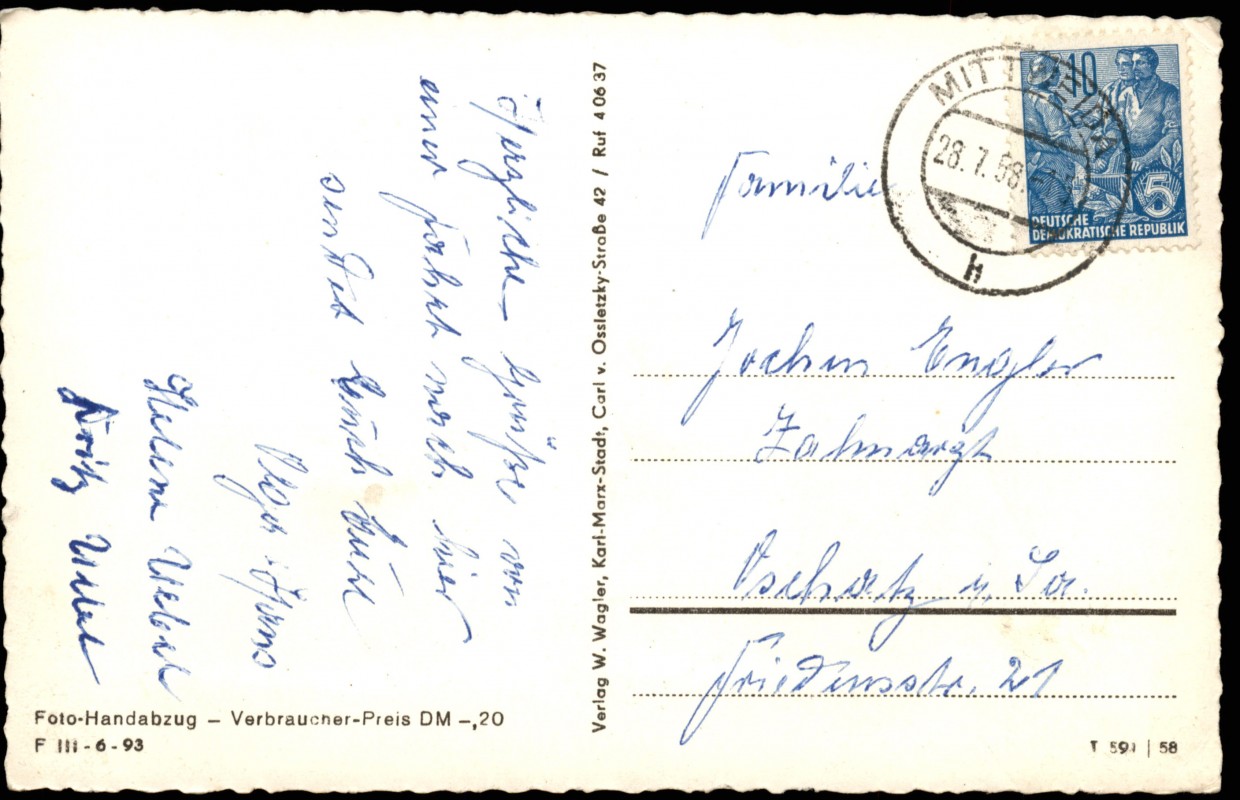 Herzliche Grüße von
einer Fahrt nach hier
sendet Euch Eure
Hans
Helene Weber
Fritz Weber
Foto-Handabzug – Verbraucher-Preis DM –,20
F III-6-93
Verlag W. Wagler, Karl-Marx-Stadt, Carl v. Ossietzky-Straße 42 / Ruf 4 06 37
MITTWEIDA
28.7.58
h
10
5
DEUTSCHE
DEMOKRATISCHE REPUBLIK
Familie
Jochen Engler
Zahnarzt
Oschatz i. Sa.
Friedensstr. 21
T 591 | 58